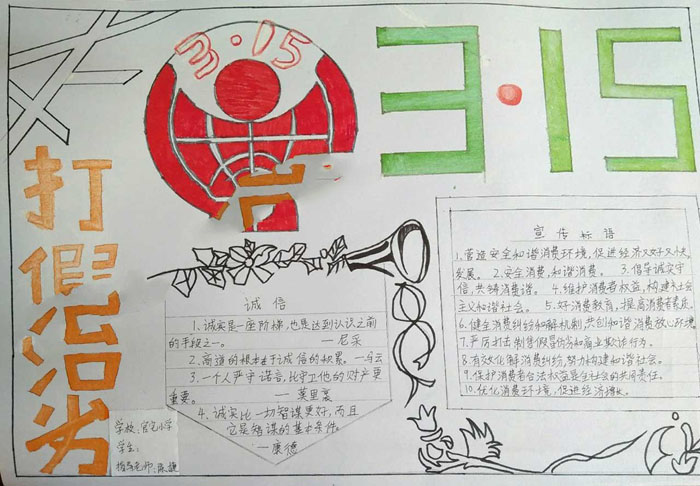 3·15
3·15
打假治劣
诚信
1、诚实是一座阶梯,也是达到认识之前
的手段之一。 —尼采
2、商道的根本在于诚信的积累。—马云
3、一个人严守诺言,比守卫他的财产更
重要。 —莫里哀
4、诚实比一切智谋更好,而且
它是智谋的基本条件。
—康德
学校:官屯小学
学生:
指导老师:
宣传标语
1、营造安全和谐消费环境,促进经济又好又快
发展。 2、安全消费,和谐消费。 3、倡导诚实守
信,共铸消费谐。 4、维护消费者权益,构建社会
主义和谐社会。 5、好消费教育,提高消费者素质。
6、健全消费纠纷和解机制,共创和谐消费放心环境
7、严厉打击制售假冒伪劣和商业欺诈行为。
8、有效化解消费纠纷,努力构建和谐社会。
9、保护消费者合法权益是全社会的共同责任。
10、优化消费环境,促进经济增长。